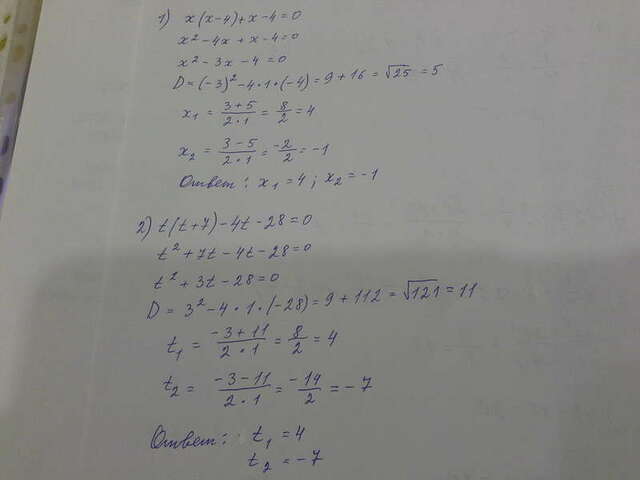 1) x(x-4)+x-4=0
x²-4x+x-4=0
x²-3x-4=0
D=(-3)²-4·1·(-4)=9+16=√25=5
x₁ = (3+5)/(2·1) = 8/2 = 4
x₂ = (3-5)/(2·1) = -2/2 = -1
Ответ: x₁=4; x₂=-1
2) t(t+7)-4t-28=0
t²+7t-4t-28=0
t²+3t-28=0
D=3²-4·1·(-28)=9+112=√121=11
t₁ = (-3+11)/(2·1) = 8/2 = 4
t₂ = (-3-11)/(2·1) = -14/2 = -7
Ответ: t₁=4
t₂=-7